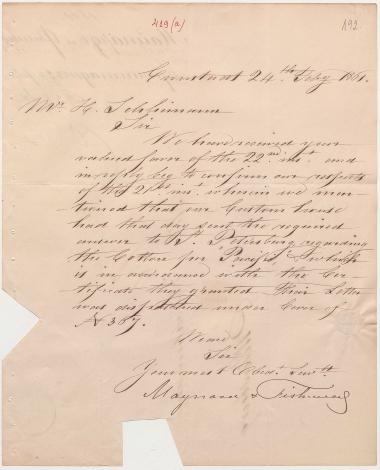 419 (a)
192
Cronstadt 24th Feby 1861.
Mr. H. Schliemann
Sir
We have received your
valued favor of the 22nd inst. and
in reply beg to confirm our respects
of the 21st inst. wherein we men-
tioned that our Custom house
had that day sent the required
answer to St. Petersburg regarding
the Cotton per "Pacific" which
is in accordance with the Cer-
tificate they granted. Their Letter
was dispatched under Cover of
N 367.
We are
Sir
Your most Obedt. Servts.
Maynard &